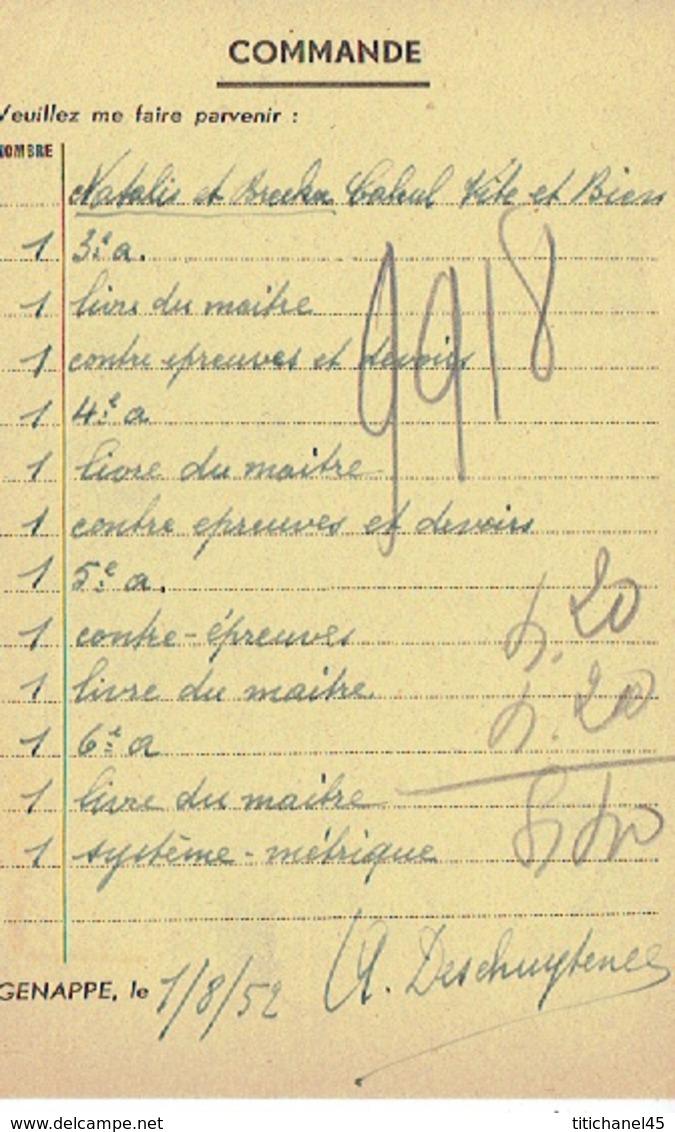 COMMANDE
Veuillez me faire parvenir :
NOMBRE
Natalis et Calcul Vite et Bien
1 3e a.
1 livre du maitre
1 contre epreuves et devoirs
1 4e a
1 livre du maitre
1 contre epreuves et devoirs
1 5e a.
1 contre-épreuves
1 livre du maitre
1 6e a
1 livre du maitre
1 système-métrique
9918
4.20
4.20
8,40
GENAPPE, le 1/8/52
A. Deschuyteneer
delcampe.net
titichanel45